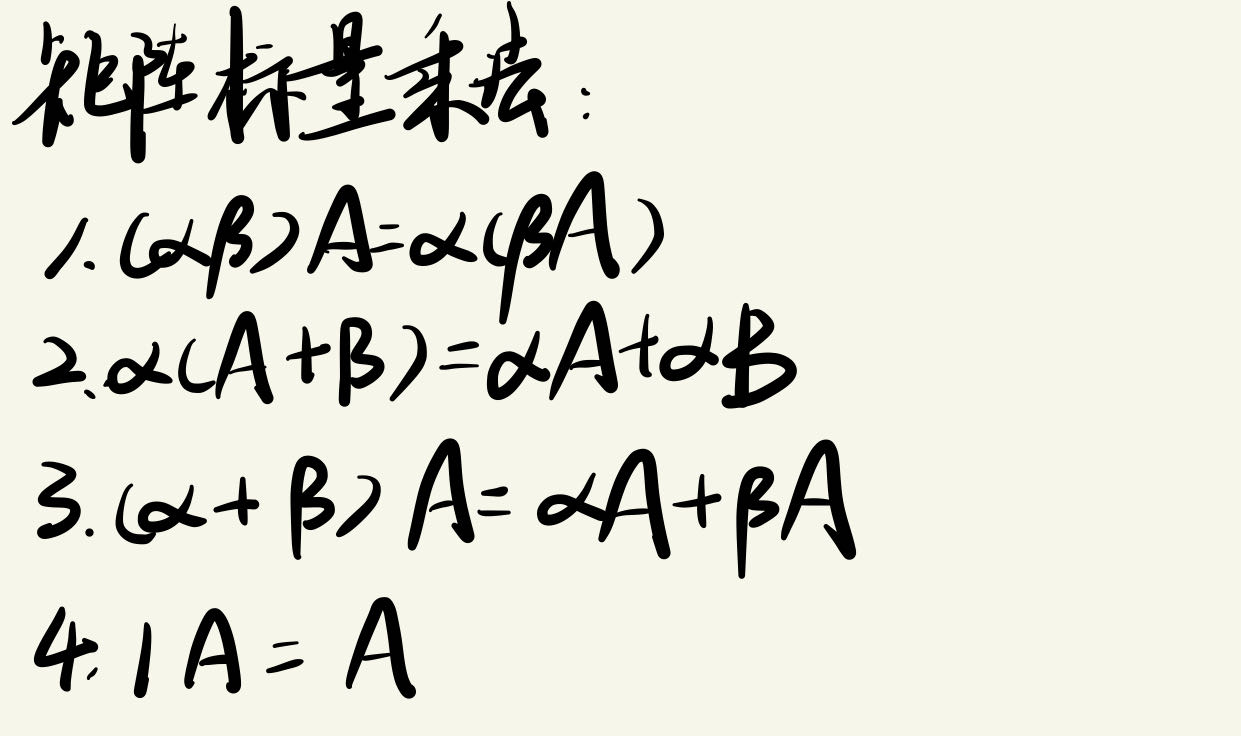 矩阵标量乘法:
1. (αβ)A=α(βA)
2. α(A+B)=αA+αB
3. (α+β)A=αA+βA
4. 1A=A